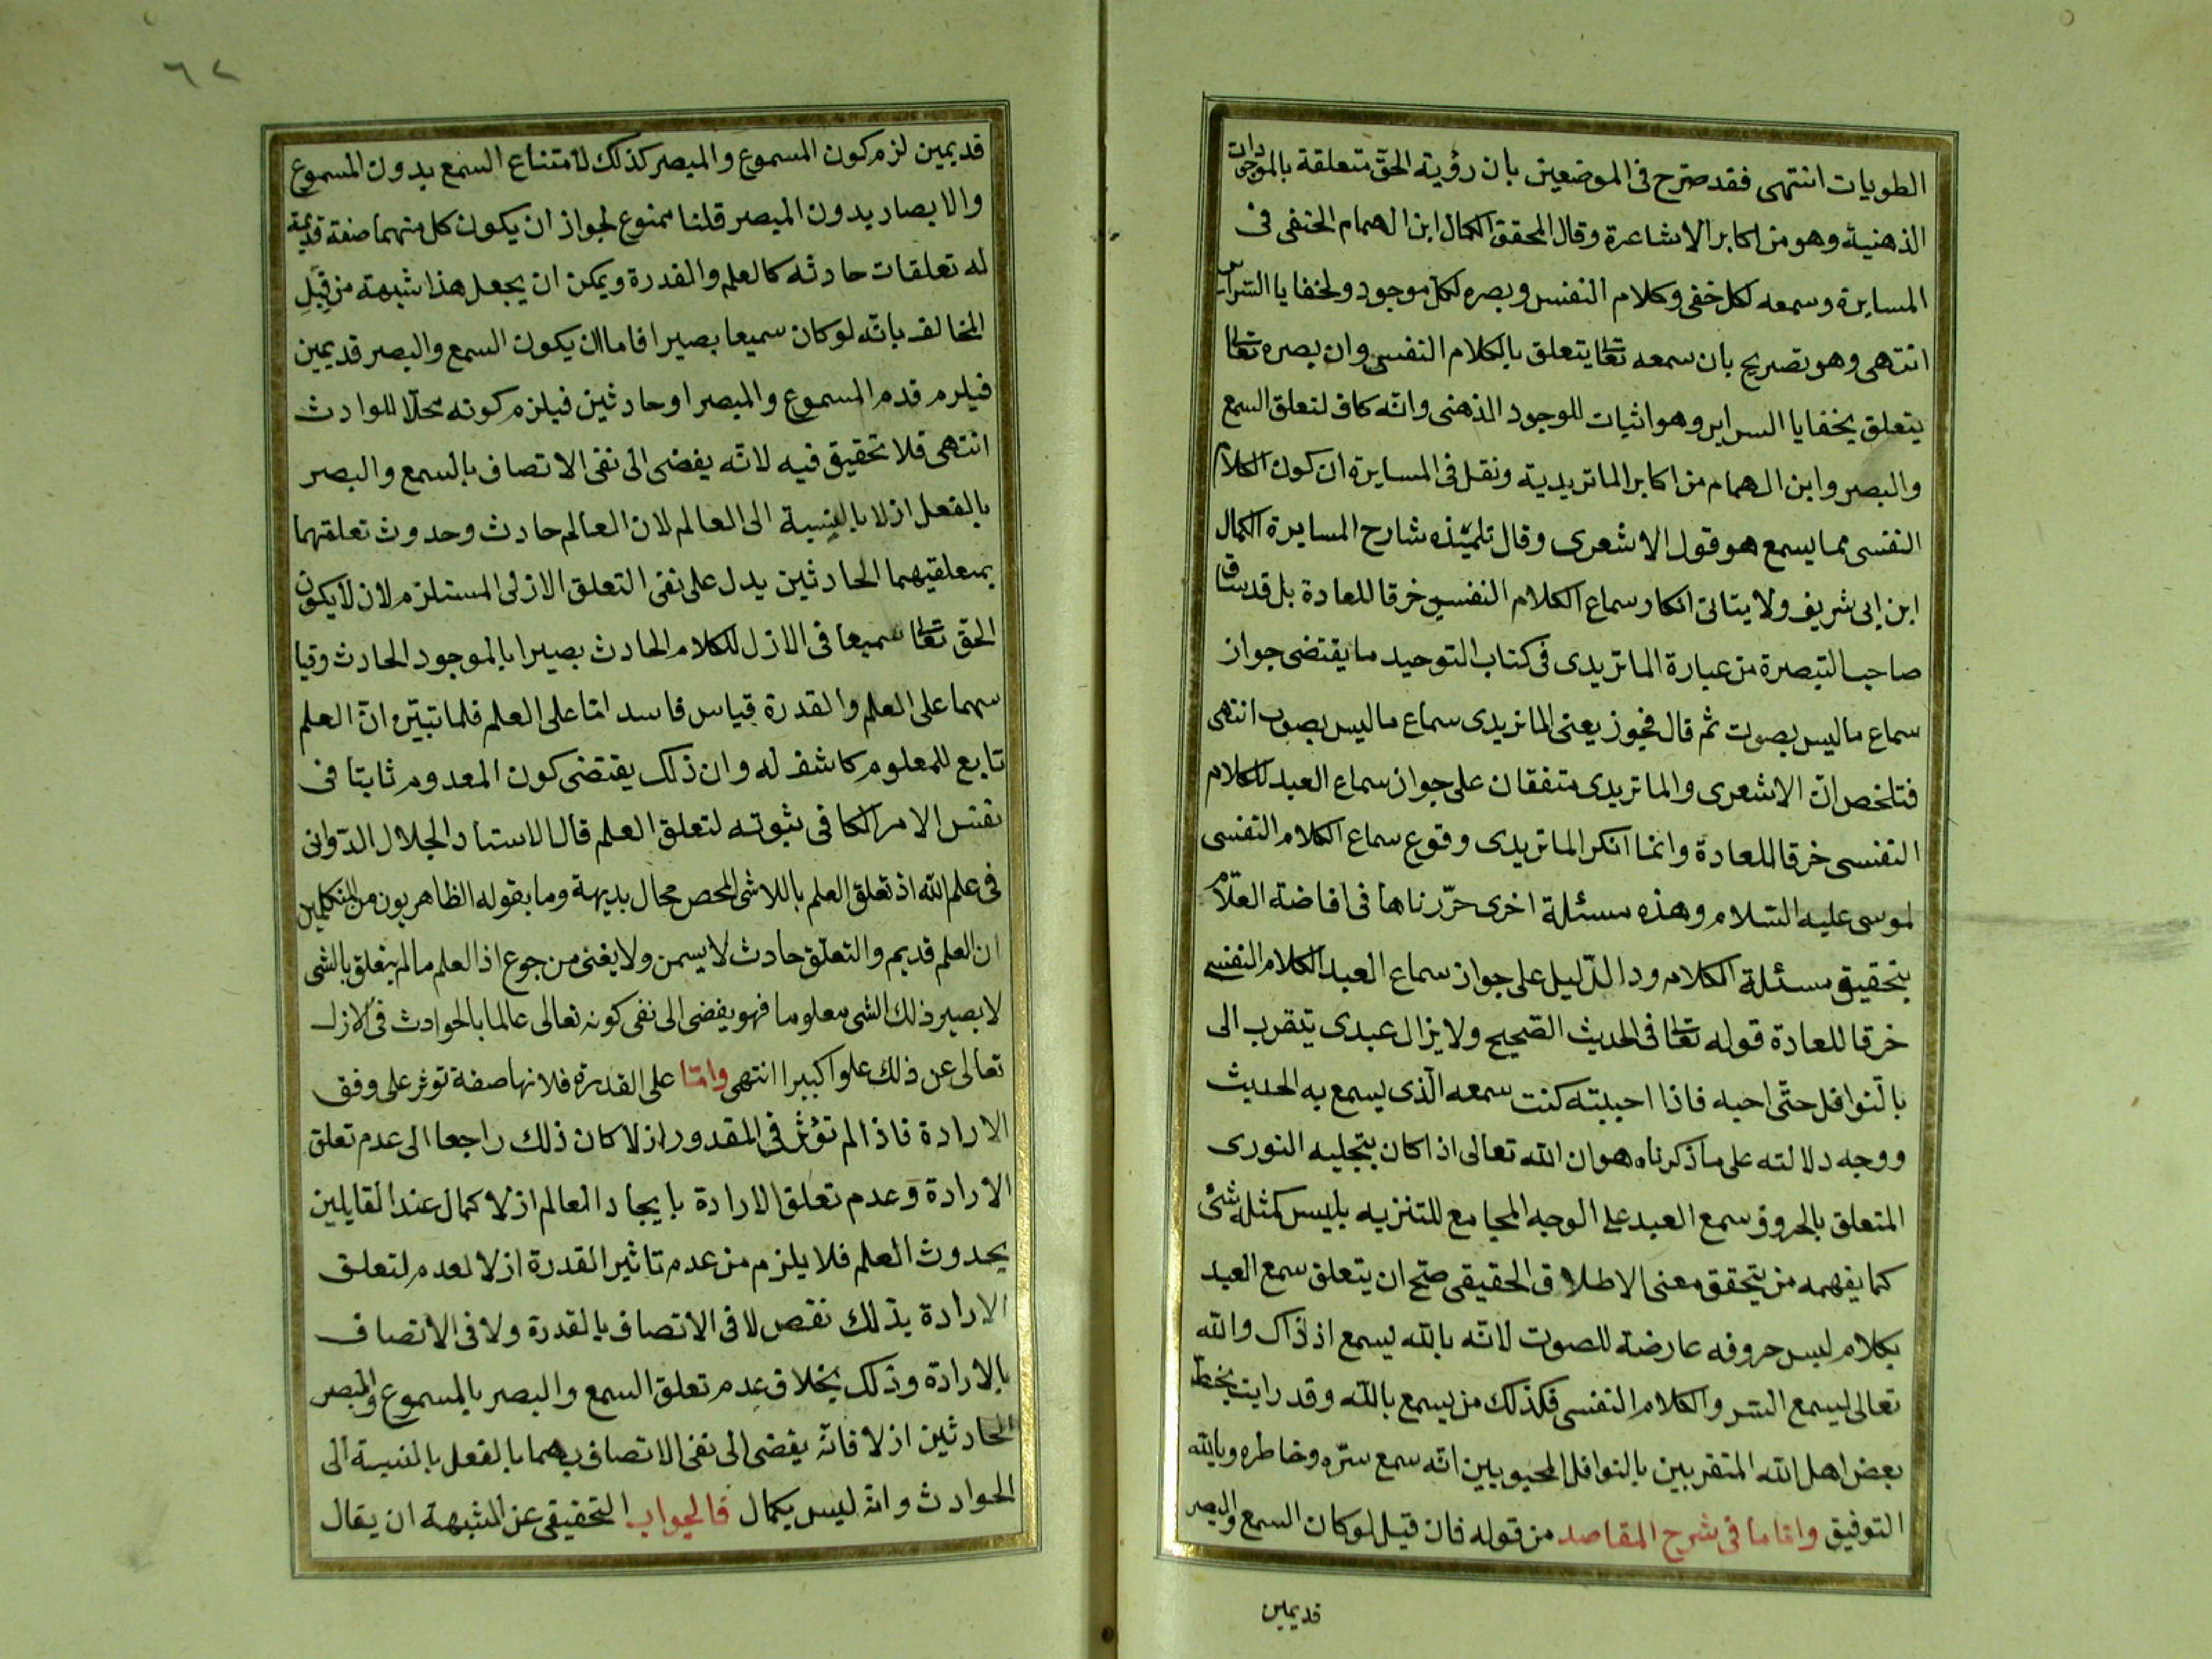 الطويات انتهى فقد صرّح فى الموضعين بان رؤية الحقّ متعلقة بالموجودات
الذهنية وهو من اكابر الاشاعرة وقال المحقق الكمال ابن الهمام الحنفى فى
المسايرة وسمعه لكل خفى وكلام النفس وبصره لكل موجود ولخفايا السراير
انتهى وهو تصريح بان سمعه تعالى يتعلق بالكلام النفسى وان بصره تعالى
يتعلق بخفايا السراير وهو اثبات للوجود الذهنى وانّه كاف لتعلق السمع
والبصر وابن الهمام من اكابر الماتريدية ونقل فى المسايرة ان كون الكلام
النفسى مما يسمع هو قول الاشعرى وقال تلميذه شارح المسايرة الكمال
ابن ابى شريف ولا يتاتى انكار سماع الكلام النفسى خرقا للعادة بل قد ساق
صاحب التبصرة من عبارة الماتريدى فى كتاب التوحيد ما يقتضى جواز
سماع ما ليس بصوت ثم قال فجوز يعنى الماتريدى سماع ما ليس بصوت انتهى
فتلخص انّ الاشعرى والماتريدى متفقان على جواز سماع العبد للكلام
النفسى خرقا للعادة وانما انكر الماتريدى وقوع سماع الكلام النفسى
لموسى عليه السّلام وهذه مسئلة اخرى حرّرناها فى افاضة العلّام
بتحقيق مسئلة الكلام ودا الدّليل على جواز سماع العبد الكلام النفسى
خرقا للعادة قوله تعالى فى الحديث الصّحيح ولا يزال عبدى يتقرب الى
بالنوافل حتّى احبه فاذا احببته كنت سمعه الّذى يسمع به الحديث
ووجه دلالته على ما ذكرناه هو ان الله تعالى اذا كان بتجليه النورى
المتعلق بالحروف سمع العبد على الوجه المجامع للتنزيه بليس كمثله شئ
كما يفهمه من يتحقق معنى الاطلاق الحقيقى صحّ ان يتعلق سمع العبد
بكلام ليس حروفه عارضة للصوت لانّه بالله يسمع اذ ذاك والله
تعالى يسمع السّر والكلام النفسى فكذلك من يسمع بالله وقد رايت بخط
بعض اهل الله المتقربين بالنوافل المحبوبين انّه سمع سرّه وخاطره وبالله
التوفيق وامّا ما فى شرح المقاصد من قوله فان قيل لو كان السمع والبصر
قديمين
٦٢
قديمين لزم كون المسموع والمبصر كذلك لامتناع السمع بدون المسموع
والابصار بدون المبصر قلنا ممنوع لجواز ان يكون كل منهما صفة قديمة
له تعلقات حادثه كالعلم والقدرة ويمكن ان يجعل هذا شبهة من قِبَلِ
المخالف بانّه لو كان سميعا بصيرا فاما ان يكون السمع والبصر قديمين
فيلزم قدم المسموع والمبصر او حادثين فيلزم كونه محلّا للوادث
انتهى فلا تحقيق فيه لانّه يفضى الى نفى الاتصاف بالسمع والبصر
بالفعل ازلا بالنسبة الى العالم لان العالم حادث وحدوث تعلقهما
بمتعلقيهما الحادثين يدل على نفى التعلق الازلى المستلزم لان لا يكون
الحقّ تعالى سميعا فى الازل للكلام الحادث بصيرا بالموجود الحادث وقيا
سهما على العلم والقدرة قياس فاسد امّا على العلم فلما تبيّن انّ العلم
تابع للمعلوم كاشف له وان ذلك يقتضى كون المعدوم ثابتا فى
نفس الامر الكافى ثبوته لتعلق العلم قال الاستاد الجلال الدّوانى
فى علم الله اذ تعلق العلم باللاشئ المحض محال بديهة وما يقوله الظاهريون من المتكلمين
ان العلم قديم والتعلّق حادث لا يسمن ولا يغنى من جوع اذ العلم ما لم يتعلق بالشى
لا يصير ذلك الشى معلوما فهو يفضى الى نفى كونه تعالى عالما بالحوادث فى الازل
تعالى عن ذلك علوا كبيرا انتهى وامّا على القدرة فلانها صفة توثر على وفق
الارادة فاذا لم تؤثّر فى المقدور ازلا كان ذلك راجعا الى عدم تعلق
الارادة وعدم تعلق الارادة بايجاد العالم ازلا كمال عند القايلين
بحدوث العلم فلا يلزم من عدم تاثير القدرة ازلا لعدم لتعلق
الارادة بذلك نقص لا فى الاتصاف بالقدرة ولا فى الاتصاف
بالارادة وذلك بخلاف عدم تعلق السمع والبصر بالمسموع والمبصر
الحادثين ازلا فانّه يفضى الى نفى الاتصاف بهما بالفعل بالنسبة الى
الحوادث وانّه ليس بكمال فالجواب التحقيقى عن الشبهة ان يقال